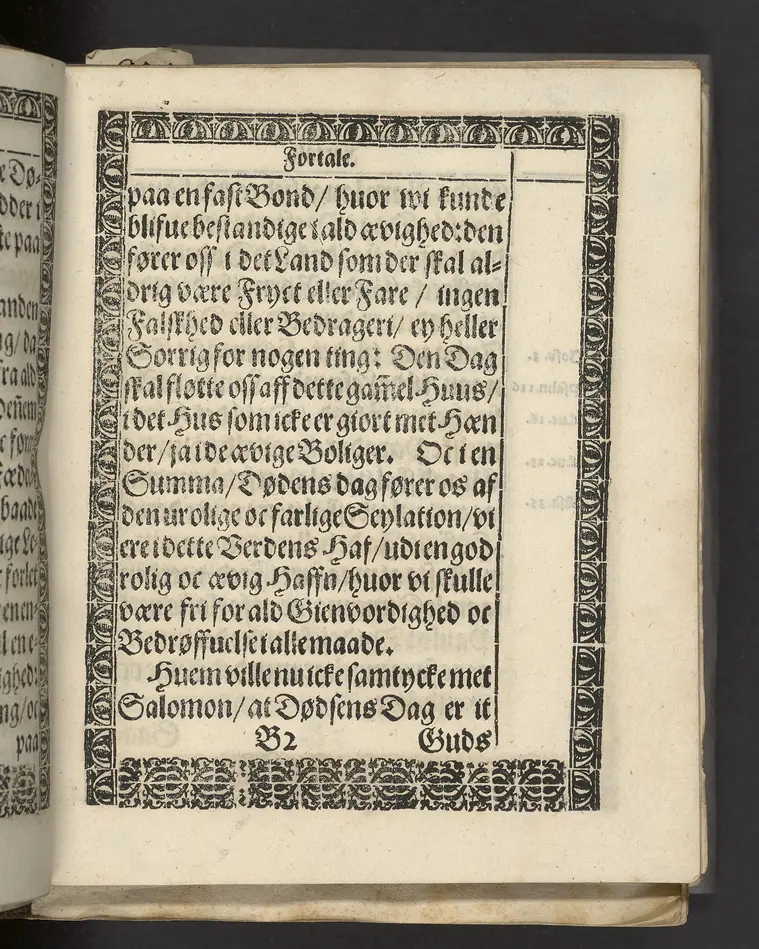 Fortale.
paa en fast Bond/ huor wi kunde
blifue bestandige i ald ævighed: den
fører oss i det Land som der skal al=
drig være Fryct eller Fare / ingen
Falskhed eller Bedrageri/ ey heller
Sorrig for nogen ting: Den Dag
skal fløtte oss aff dette gam̄el Huus/
i det Hus som icke er giort met Hæn
der/ ja i de ævige Boliger. Oc i en
Summa/ Dødens dag fører os af
den urolige oc farlige Seylation/ vi
ere i dette Verdens Haf/ udi en god
rolig oc ævig Haffn/ huor vi skulle
være fri for ald Gienvordighed oc
Bedrøffuelse i alle maade.
Huem ville nu icke samtycke met
Salomon/ at Dødsens Dag er it
B2 Guds
paa